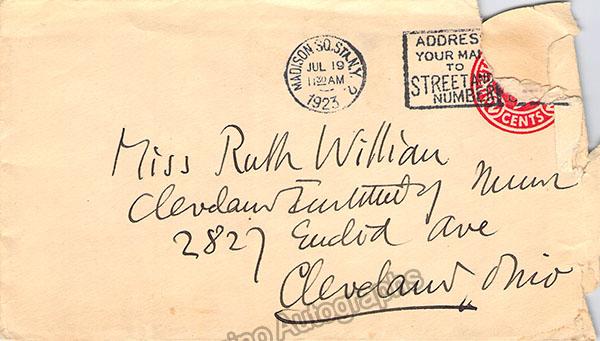 MADISON SQ. STA. N.Y.
JUL 19
11 30 AM
1923
2
ADDRESS
YOUR MAIL
TO
STREET AND
NUMBER
CENTS
Miss Ruth Willian
Cleveland Institute of Music
2827 Euclid Ave
Cleveland, Ohio
Autographs